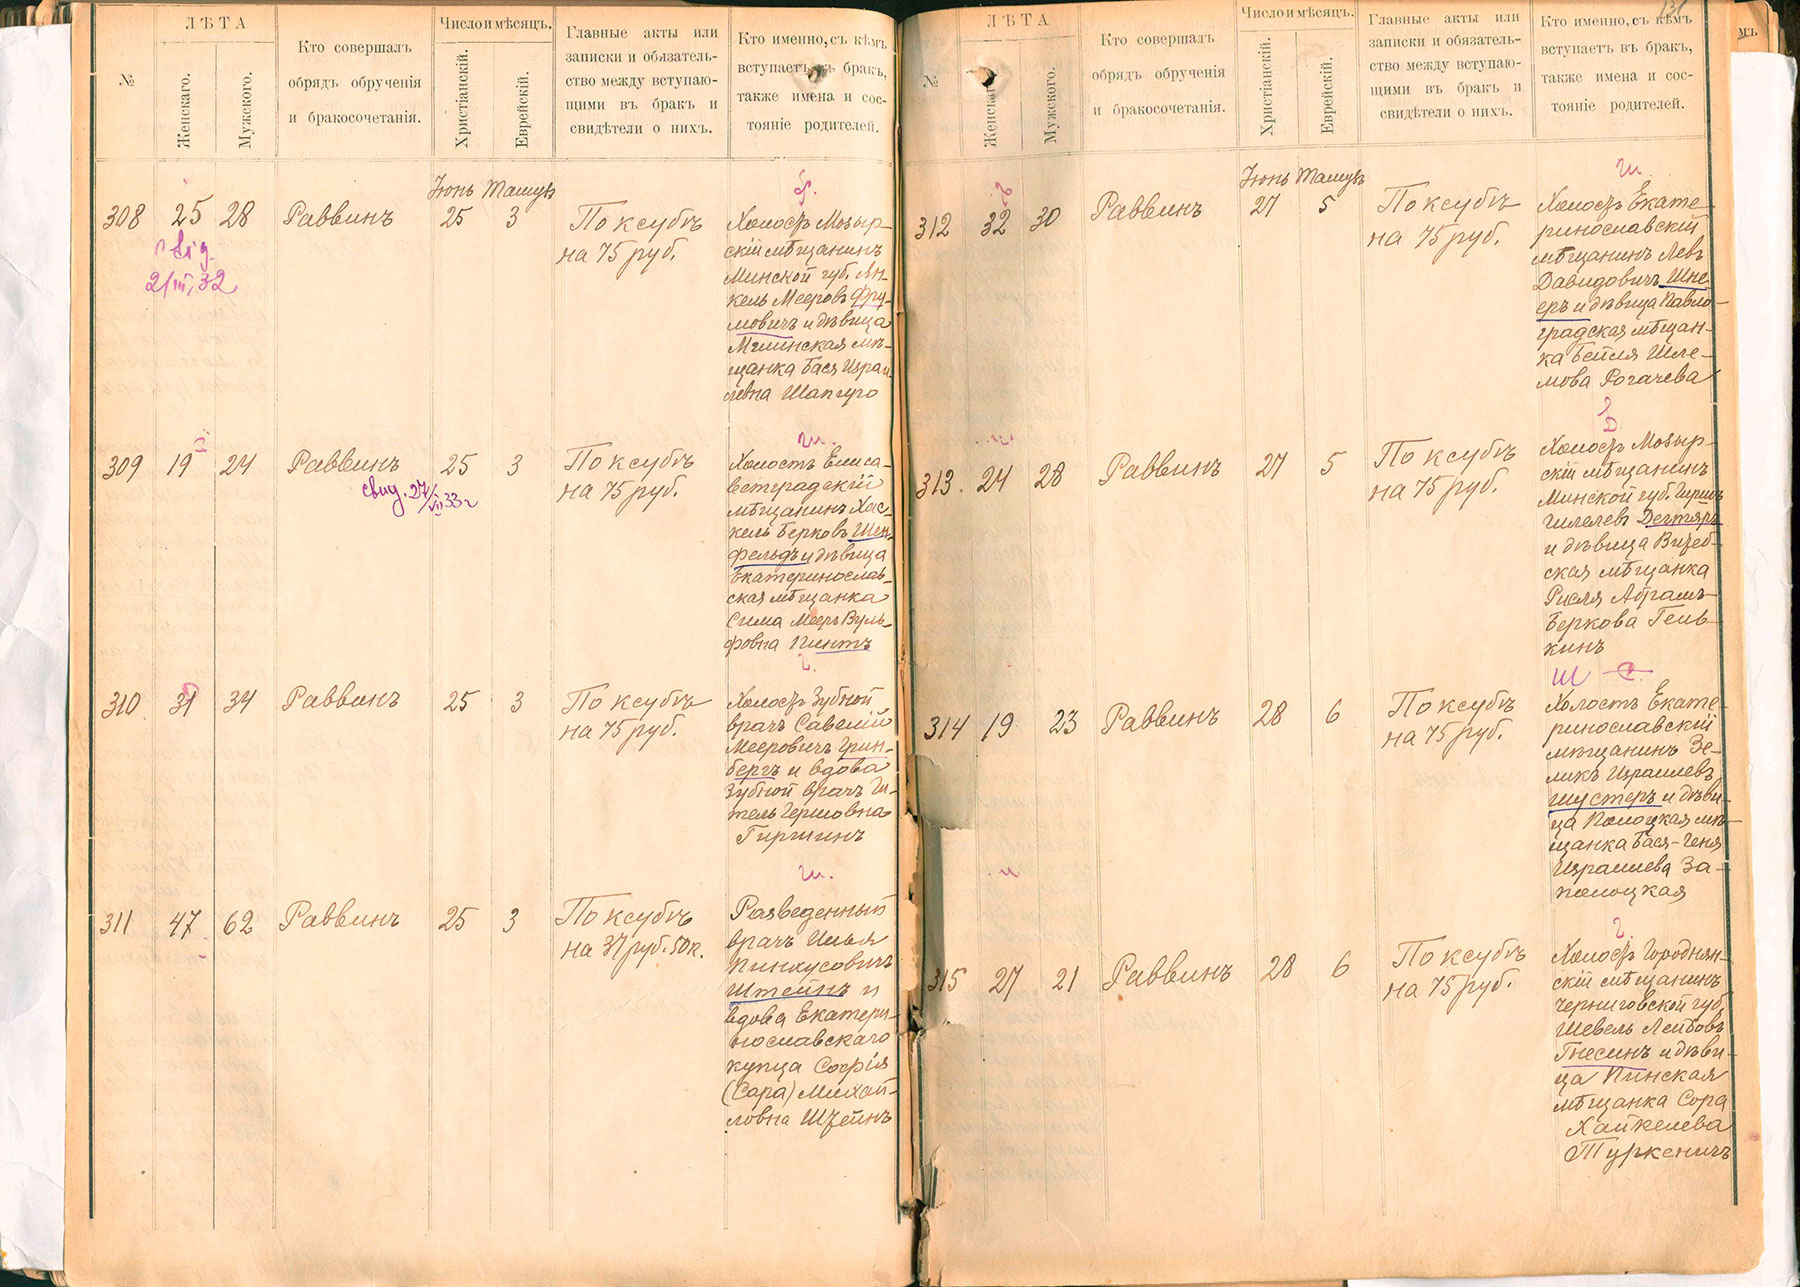 №
ЛѢТА
Женскаго.
Мужского.
Кто совершалъ
обрядъ обрученія
и бракосочетанія.
Число и мѣсяцъ.
Христіанскій.
Еврейскій.
Главные акты или
записки и обязатель-
ство между вступаю-
щими въ бракъ и
свидѣтели о нихъ.
Кто именно, съ кѣмъ
вступаетъ въ бракъ,
также имена и сос-
тояніе родителей.
Іюнь Тамузъ
308 25 28 Раввинъ 25 3
По ксубѣ
на 75 руб.
свід.
2/III, 32
ф.
Холостъ Мозыр-
скій мѣщанинъ
Минской губ. Ян-
кель Мееровъ Фру-
мовичъ и дѣвица
Мглинская мѣ-
щанка Бася Израи-
левна Шапиро
309 19 24 Раввинъ 25 3
По ксубѣ
на 75 руб.
свид. 27/VII 33 г
ш.
Холостъ Елиса-
ветградскій
мѣщанинъ Хас-
кель Берковъ Шен-
фельдъ и дѣвица
Екатеринослав-
ская мѣщанка
Сима Мееръ Вуль-
фовна Пинтъ
310 31 34 Раввинъ 25 3
По ксубѣ
на 75 руб.
г.
Холостъ Зубной
врачъ Савелій
Мееровичъ Грин-
бергъ и вдова
Зубной врачъ Ги-
тель Гершовна
Гиршинъ
311 47 62 Раввинъ 25 3
По ксубѣ
на 37 руб. 50 к.
ш.
Разведенный
врачъ Илья
Пинхусовичъ
Штейнъ и
вдова Екатери-
нославскаго
купца Софія
(Сара) Михай-
ловна Штейнъ
131
№
ЛѢТА
Женскаго.
Мужского.
Кто совершалъ
обрядъ обрученія
и бракосочетанія.
Число и мѣсяцъ.
Христіанскій.
Еврейскій.
Главные акты или
записки и обязатель-
ство между вступаю-
щими въ бракъ и
свидѣтели о нихъ.
Кто именно, съ кѣмъ
вступаетъ въ бракъ,
также имена и сос-
тояніе родителей.
мъ
Іюнь Тамузъ
312 32 30 Раввинъ 27 5
По ксубѣ
на 75 руб.
ш.
Холостъ Екате-
ринославскій
мѣщанинъ Левъ
Давидовичъ Шне-
еръ и дѣвица Павло-
градская мѣщан-
ка Бейля Шле-
мова Рогачева
313. 24 28 Раввинъ 27 5
По ксубѣ
на 75 руб.
Д.
Холостъ Мозыр-
скій мѣщанинъ
Минской губ. Гиршъ
Гилелевъ Дегтяръ
и дѣвица Витеб-
ская мѣщанка
Рисля Абрамъ-
Беркова Гень-
кинъ
314 19 23 Раввинъ 28 6
По ксубѣ
на 75 руб.
Ш С
Холостъ Екате-
ринославскій
мѣщанинъ Зе-
ликъ Израилевъ
Шустеръ и дѣви-
ца Полоцкая мѣ-
щанка Бася-Геня
Израилева За-
полоцкая
315 27 21 Раввинъ 28 6
По ксубѣ
на 75 руб.
г.
Холостъ Городнян-
скій мѣщанинъ
Черниговской губ.
Шевель Лейбовъ
Гнесинъ и дѣви-
ца Пинская
мѣщанка Сора
Хайкелева
Туркеничъ